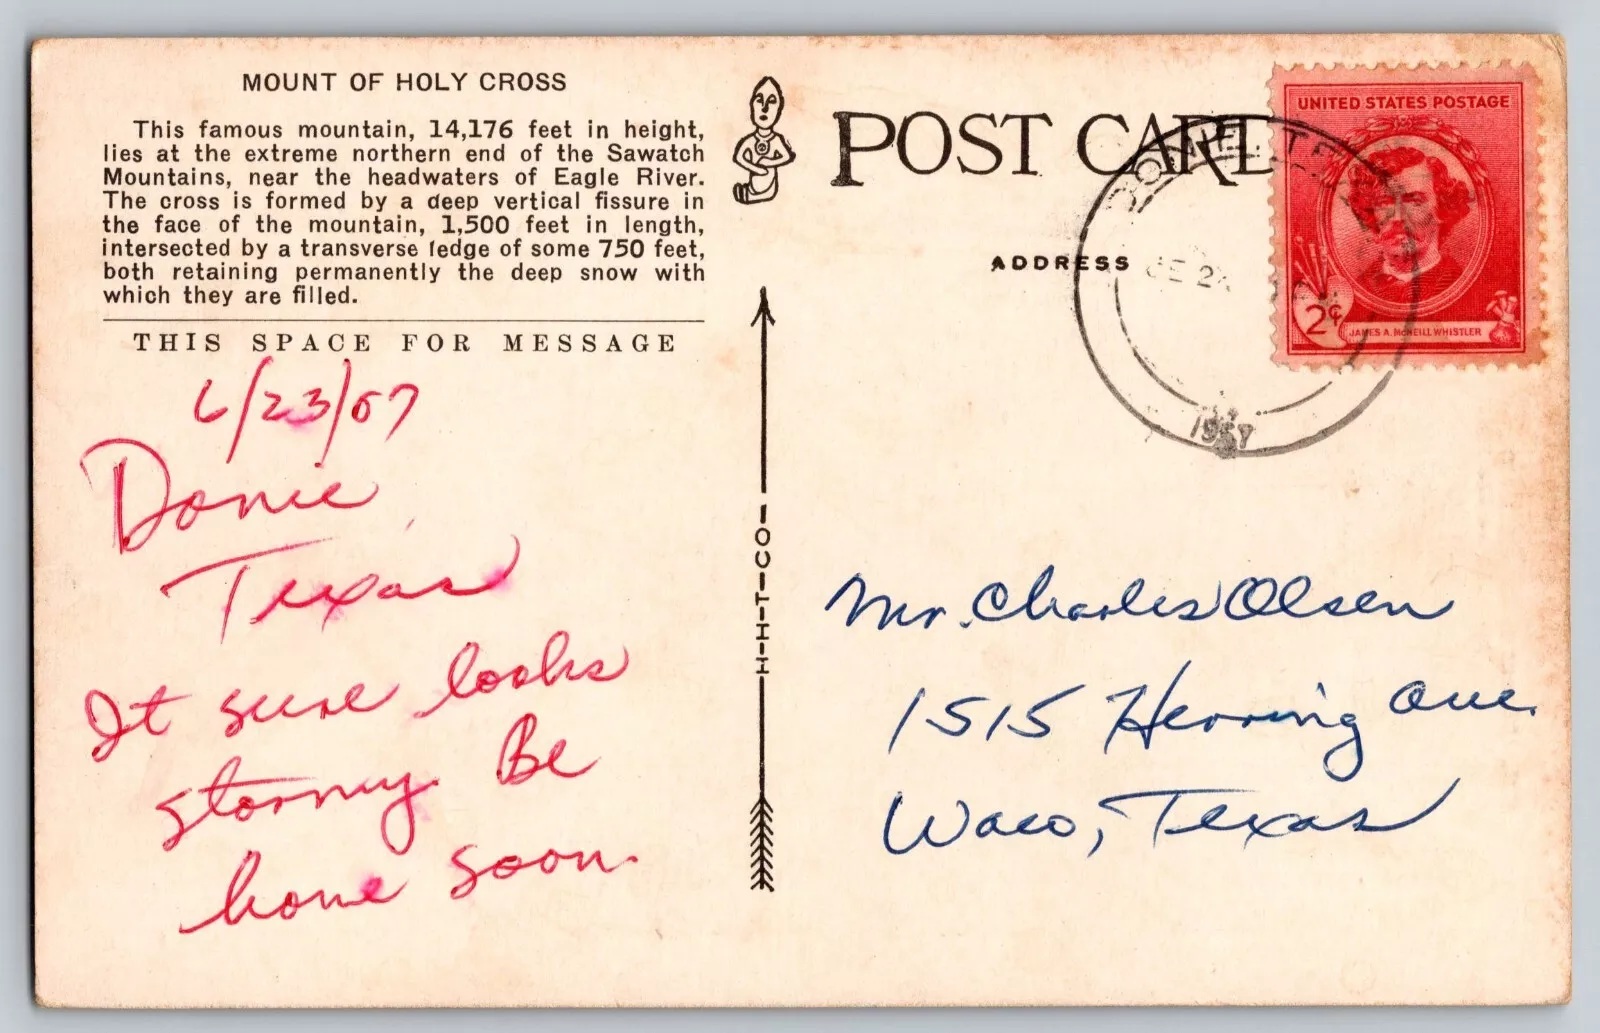 MOUNT OF HOLY CROSS
This famous mountain, 14,176 feet in height,
lies at the extreme northern end of the Sawatch
Mountains, near the headwaters of Eagle River.
The cross is formed by a deep vertical fissure in
the face of the mountain, 1,500 feet in length,
intersected by a transverse ledge of some 750 feet,
both retaining permanently the deep snow with
which they are filled.
THIS SPACE FOR MESSAGE
6/23/57
Donie,
Texas
It sure looks
stormy. Be
home soon.
H-H-T-CO-
POST CARD
ADDRESS
DONIE, TEXAS
1957
UNITED STATES POSTAGE
2¢
JAMES A. McNEILL WHISTLER
Mr. Charles Olsen
1515 Herring Ave.
Waco, Texas